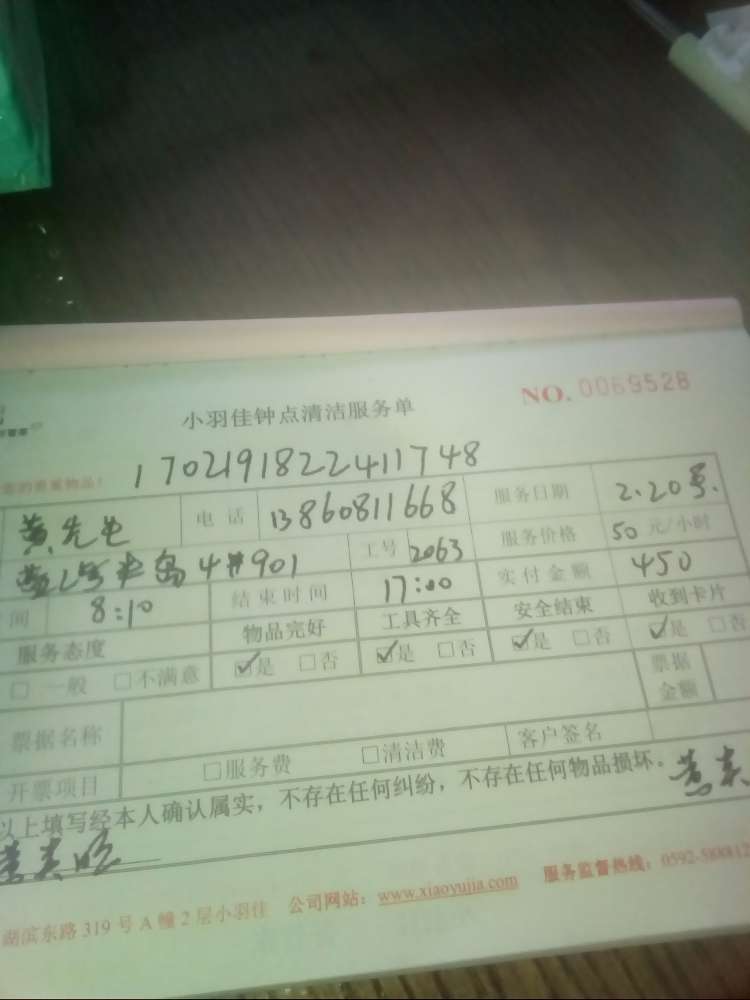 小羽佳钟点清洁服务单 NO. 0069528
的贵重物品! 17021918222411748
黄先生 电话 13860811668 服务日期 2.20号.
半岛4#901 工号 2063 服务价格 50 元/小时
间 8:10 结束时间 17:00 实付金额 450
服务态度 物品完好 工具齐全 安全结束 收到卡片
□ 一般 □不满意 ☑是 □否 ☑是 □否 ☑是 □否 ☑是 □否
票据名称 票据金额
开票项目 □服务费 □清洁费 客户签名
以上填写经本人确认属实，不存在任何纠纷，不存在任何物品损坏。
湖滨东路319号A幢2层小羽佳 公司网站：www.xiaoyujia.com 服务监督热线：0592-588812